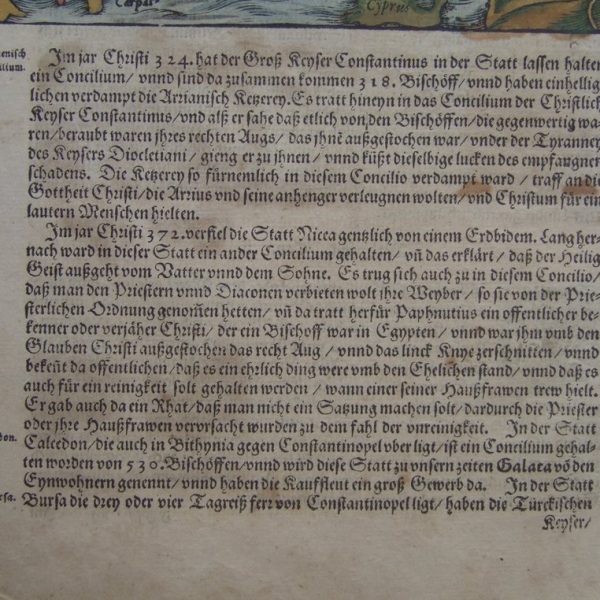 Carpat
Cyprus
Im jar Christi 324. hat der Groß Keyser Constantinus in der Statt lassen halten
ein Concilium/ vnnd sind da zusammen kommen 318. Bischöff/ vnnd haben einhellig
lichen verdampt die Arrianisch Ketzerey. Es tratt hineyn in das Concilium der Christlich
Keyser Constantinus/ vnd alß er sahe daß etlich von den Bischöffen/ die gegenwertig wa-
ren/ beraubt waren jhres rechten Augs/ das jhnē außgestochen war/ vnder der Tyranney
des Keysers Diocletiani/ gieng er zu jhnen/ vnnd küßt dieselbige lucken des empfangnen
schadens. Die Ketzerey so fürnemlich in diesem Concilio verdampt ward/ traff an die
Gottheit Christi/ die Arrius vnd seine anhenger verleugnen wolten/ vnd Christum für ein
lautern Menschen hielten.
Im jar Christi 372. verfiel die Statt Nicea gentzlich von einem Erdbidem. Lang her-
nach ward in dieser Statt ein ander Concilium gehalten/ vñ das erklärt/ daß der Heilig
Geist außgeht vom Vatter vnnd dem Sohne. Es trug sich auch zu in diesem Concilio/
daß man den Priestern vnnd Diaconen verbieten wolt ihre Weyber/ so sie von der Prie-
sterlichen Ordnung genom̄en hetten/ vñ da tratt herfür Paphnutius ein offentlicher be-
kenner oder verjäher Christi/ der ein Bischoff war in Egypten/ vnnd war jhm vmb den
Glauben Christi außgestochen das recht Aug/ vnnd das linck Knye zerschnitten/ vnnd
bekent da offentlichen/ daß es ein ehrlich ding were vmb den Ehelichen stand/ vnnd daß es
auch für ein reinigkeit solt gehalten werden/ wann einer seiner Haußfrawen trew hielt.
Er gab auch da ein Rhat/ daß man nicht ein Satzung machen solt/ dardurch die Priester
oder jhre Haußfrawen vervrsacht wurden zu dem fahl der vnreinigkeit. In der Statt
Calcedon/ die auch in Bithynia gegen Constantinopel vber ligt/ ist ein Concilium gehal-
ten worden von 530. Bischöffen/ vnnd wird diese Statt zu vnsern zeiten Galata vō den
Eynwohnern genennt/ vnnd haben die Kauffleut ein groß Gewerb da. In der Statt
Bursa die drey oder vier Tagreiß ferr von Constantinopel ligt/ haben die Türckischen
Keyser/